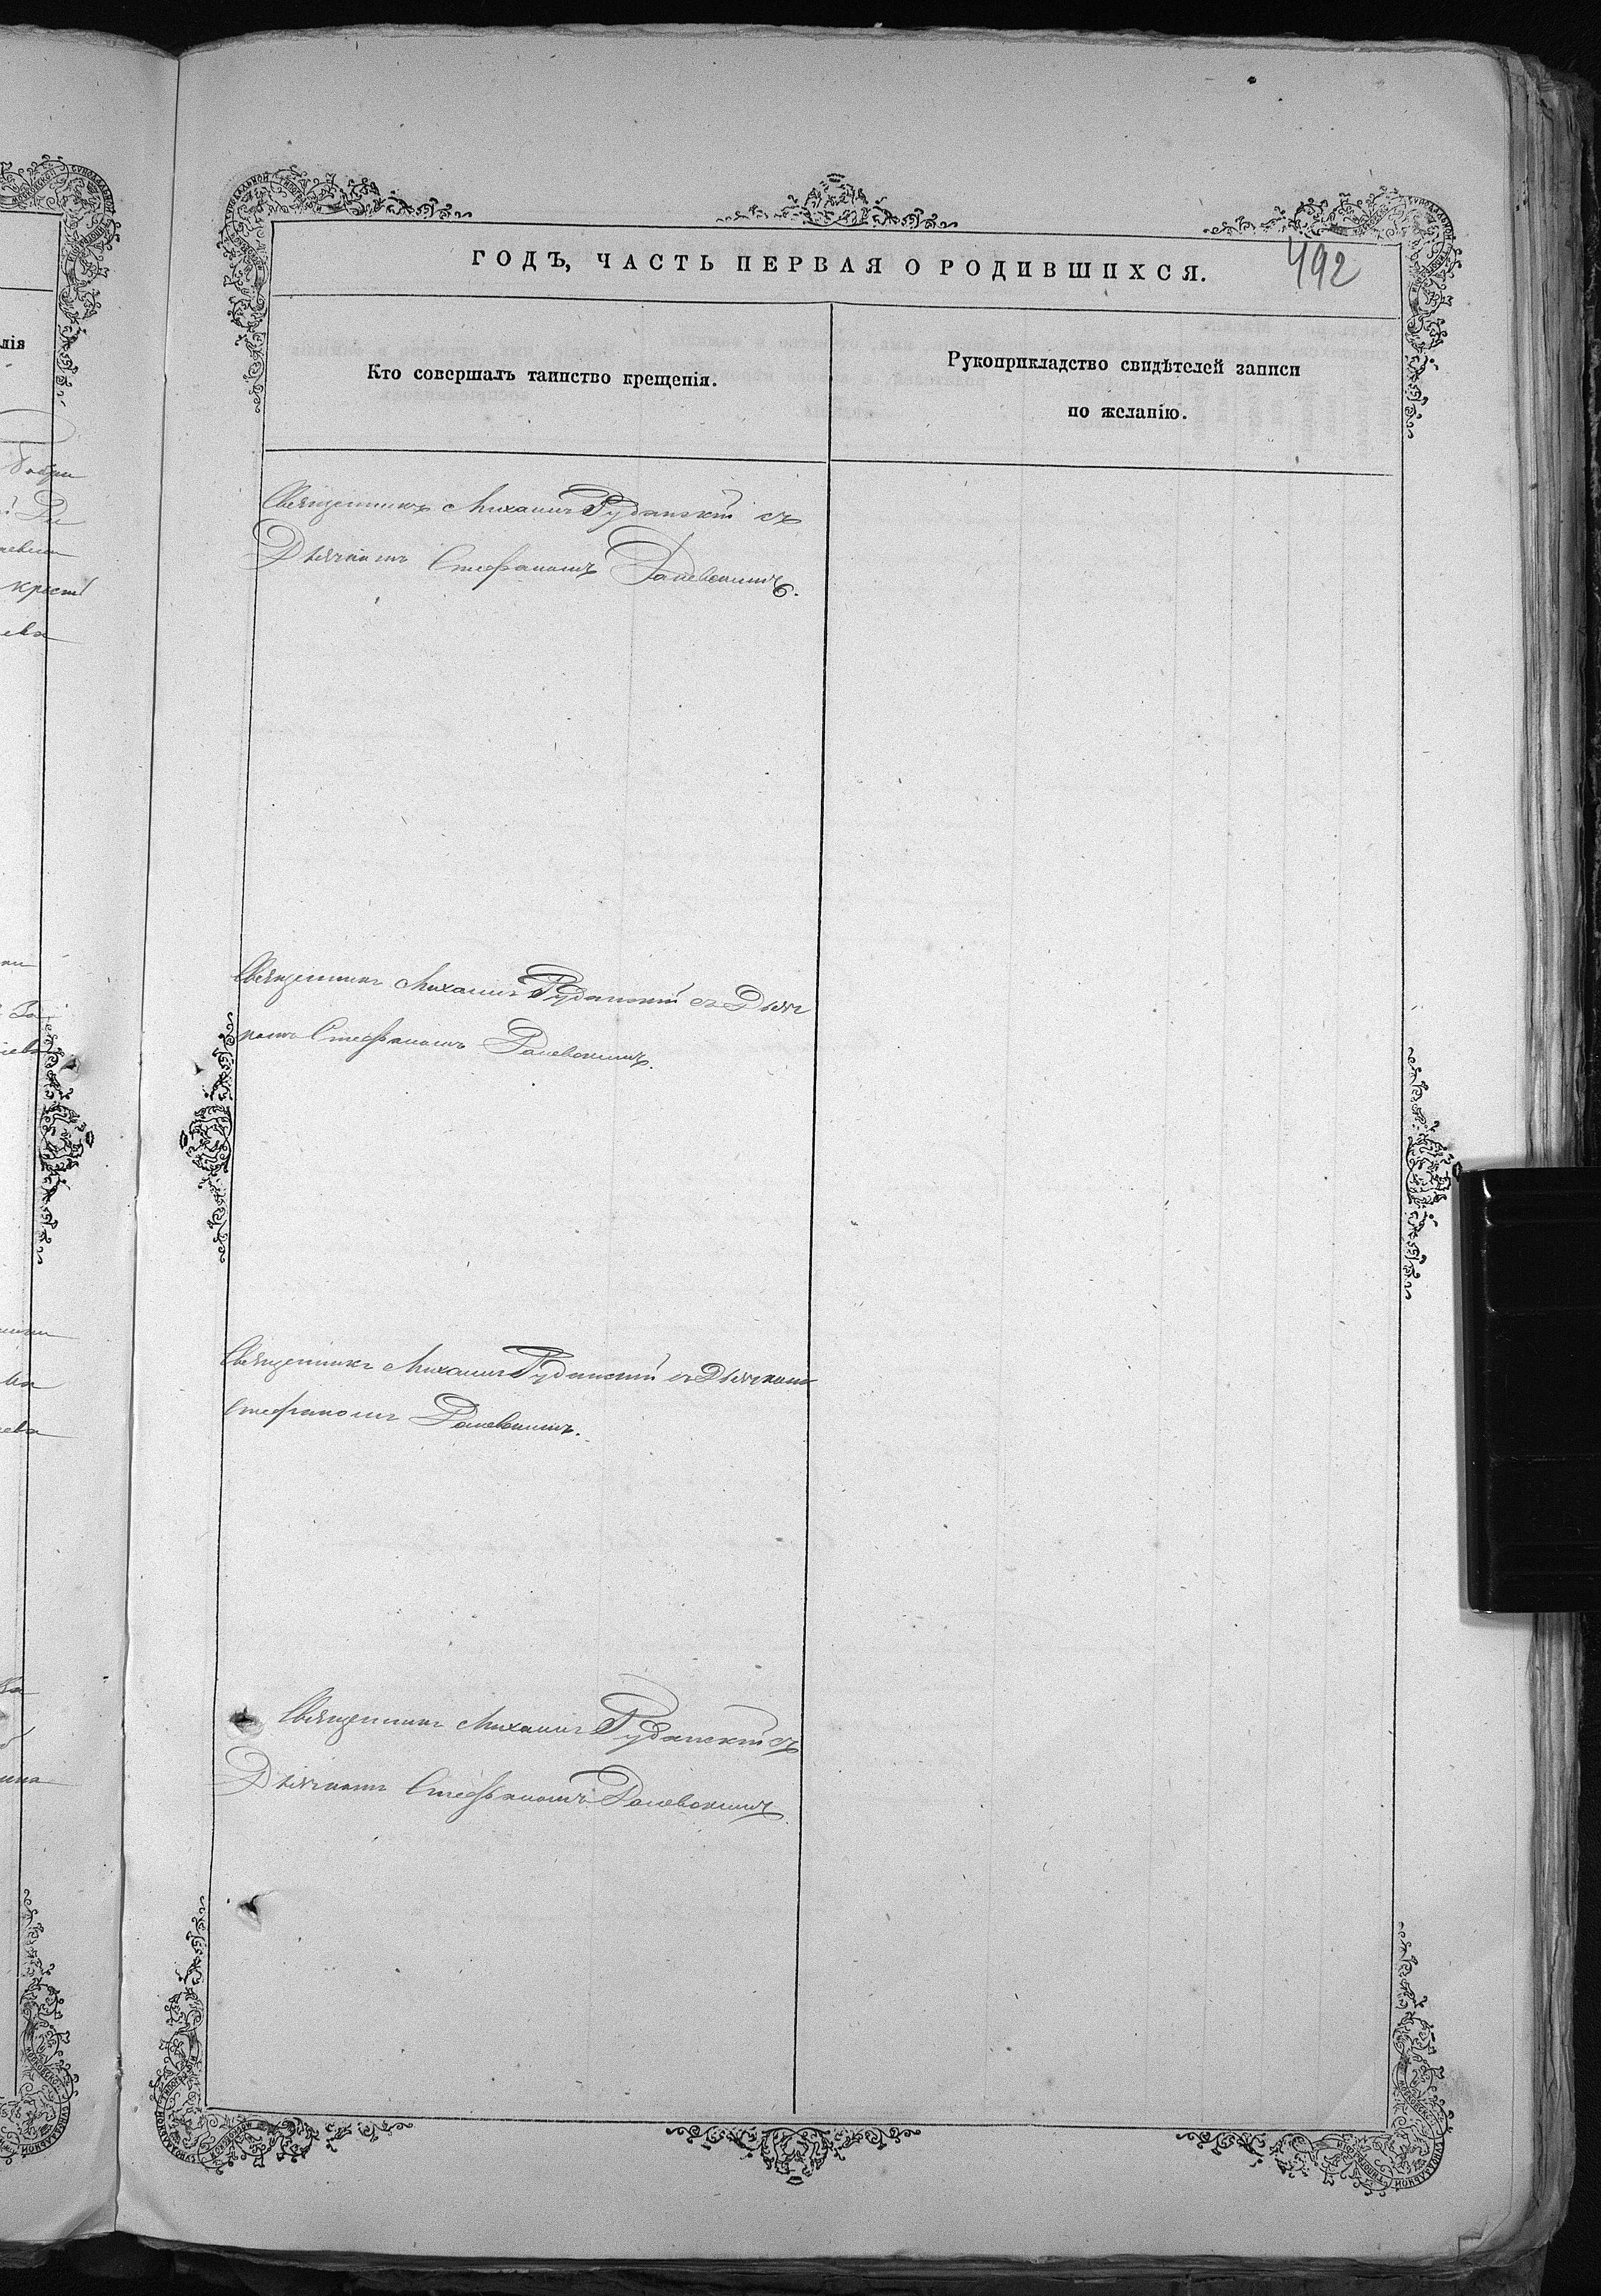 ГОДЪ, ЧАСТЬ ПЕРВАЯ О РОДИВШИХСЯ.
492
Кто совершалъ таинство крещенія.
Рукоприкладство свидѣтелей записи
по желанію.
Священникъ Михаилъ Руданскій съ
Дьячкомъ Стефаномъ
Священникъ Михаилъ Руданскій съ Дьяч
комъ Стефаномъ
Священникъ Михаилъ Руданскій съ Дьячкомъ
Стефаномъ
Священникъ Михаилъ Руданскій съ
Дьячкомъ Стефаномъ